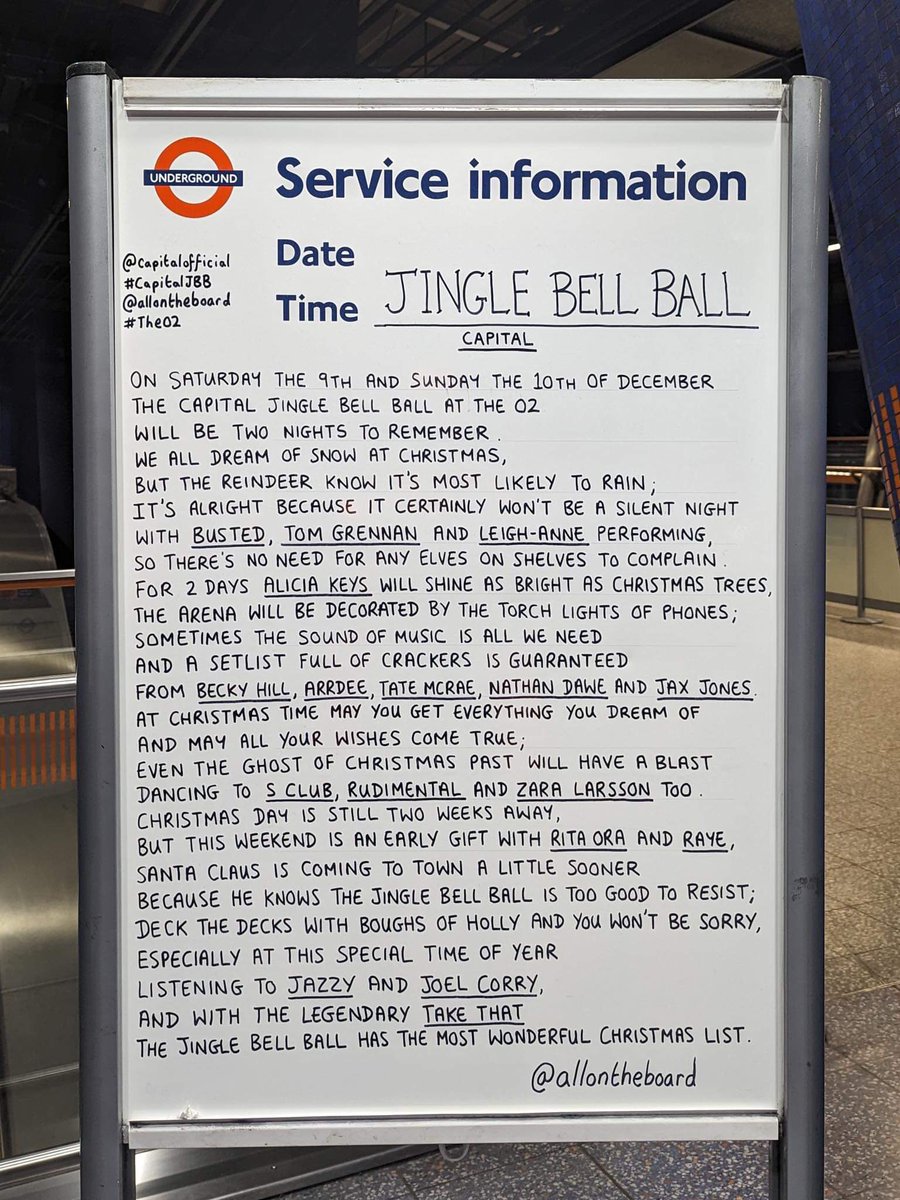 UNDERGROUND
Service information
@capitalofficial
#CapitalJBB
@allontheboard
#TheO2
Date
Time
JINGLE BELL BALL
CAPITAL
ON SATURDAY THE 9TH AND SUNDAY THE 10TH OF DECEMBER
THE CAPITAL JINGLE BELL BALL AT THE O2
WILL BE TWO NIGHTS TO REMEMBER.
WE ALL DREAM OF SNOW AT CHRISTMAS,
BUT THE REINDEER KNOW IT'S MOST LIKELY TO RAIN;
IT'S ALRIGHT BECAUSE IT CERTAINLY WON'T BE A SILENT NIGHT
WITH BUSTED, TOM GRENNAN AND LEIGH-ANNE PERFORMING,
SO THERE'S NO NEED FOR ANY ELVES ON SHELVES TO COMPLAIN.
FOR 2 DAYS ALICIA KEYS WILL SHINE AS BRIGHT AS CHRISTMAS TREES,
THE ARENA WILL BE DECORATED BY THE TORCH LIGHTS OF PHONES;
SOMETIMES THE SOUND OF MUSIC IS ALL WE NEED
AND A SETLIST FULL OF CRACKERS IS GUARANTEED
FROM BECKY HILL, ARRDEE, TATE MCRAE, NATHAN DAWE AND JAX JONES.
AT CHRISTMAS TIME MAY YOU GET EVERYTHING YOU DREAM OF
AND MAY ALL YOUR WISHES COME TRUE;
EVEN THE GHOST OF CHRISTMAS PAST WILL HAVE A BLAST
DANCING TO S CLUB, RUDIMENTAL AND ZARA LARSSON TOO.
CHRISTMAS DAY IS STILL TWO WEEKS AWAY,
BUT THIS WEEKEND IS AN EARLY GIFT WITH RITA ORA AND RAYE,
SANTA CLAUS IS COMING TO TOWN A LITTLE SOONER
BECAUSE HE KNOWS THE JINGLE BELL BALL IS TOO GOOD TO RESIST;
DECK THE DECKS WITH BOUGHS OF HOLLY AND YOU WON'T BE SORRY,
ESPECIALLY AT THIS SPECIAL TIME OF YEAR
LISTENING TO JAZZY AND JOEL CORRY,
AND WITH THE LEGENDARY TAKE THAT
THE JINGLE BELL BALL HAS THE MOST WONDERFUL CHRISTMAS LIST.
@allontheboard